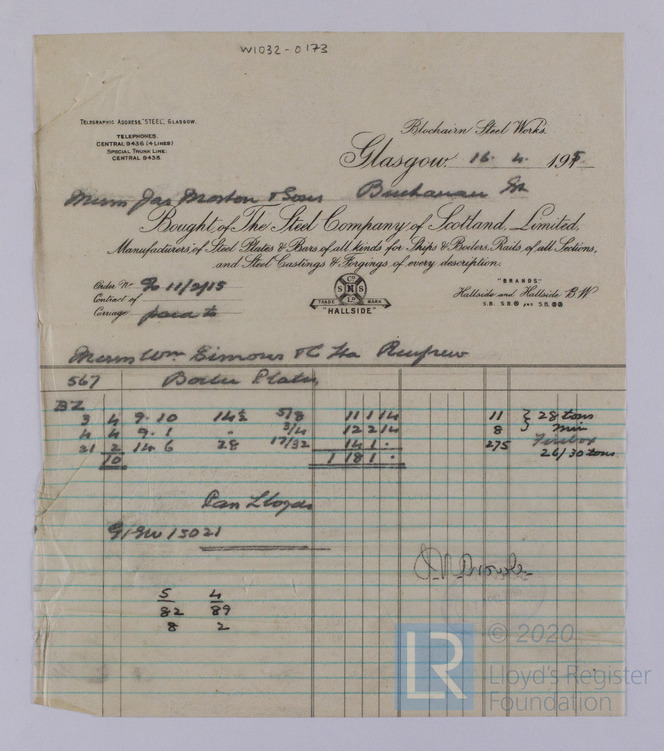 W1032-0173
TELEGRAPHIC ADDRESS, "STEEL", GLASGOW.
TELEPHONES.
CENTRAL 9436 (4 LINES)
SPECIAL TRUNK LINE:
CENTRAL 9438.
Blochairn Steel Works.
Glasgow. 16. 4. 1915.
Messrs Jas Moston & Sons Buchanan St
Bought of The Steel Company of Scotland, Limited,
Manufacturers of Steel Plates & Bars of all kinds for Ships & Boilers, Rails of all Sections,
and Steel Castings & Forgings of every description.
Order No 11/2/15
Contract of
Carriage paid to
S Co N S Ld
TRADE MARK
"HALLSIDE"
"BRANDS"
Hallside and Hallside B.W
Messrs Wm Simons & Co Ltd Renfrew
567 Boiler Plates
BZ
3 4 9.10 14½ 5/8 11 1 14 11 } 28 tons
4 4 9.1 " 3/4 12 2 14 8 } min
21 2 14.6 28 17/32 14 1 . 275 Firebox
10 1 18 1 . 26/30 tons
Pan Lloyds
G/GW 15021
5 4
82 89
8 2
© 2020
LR
Lloyd's Register
Foundation